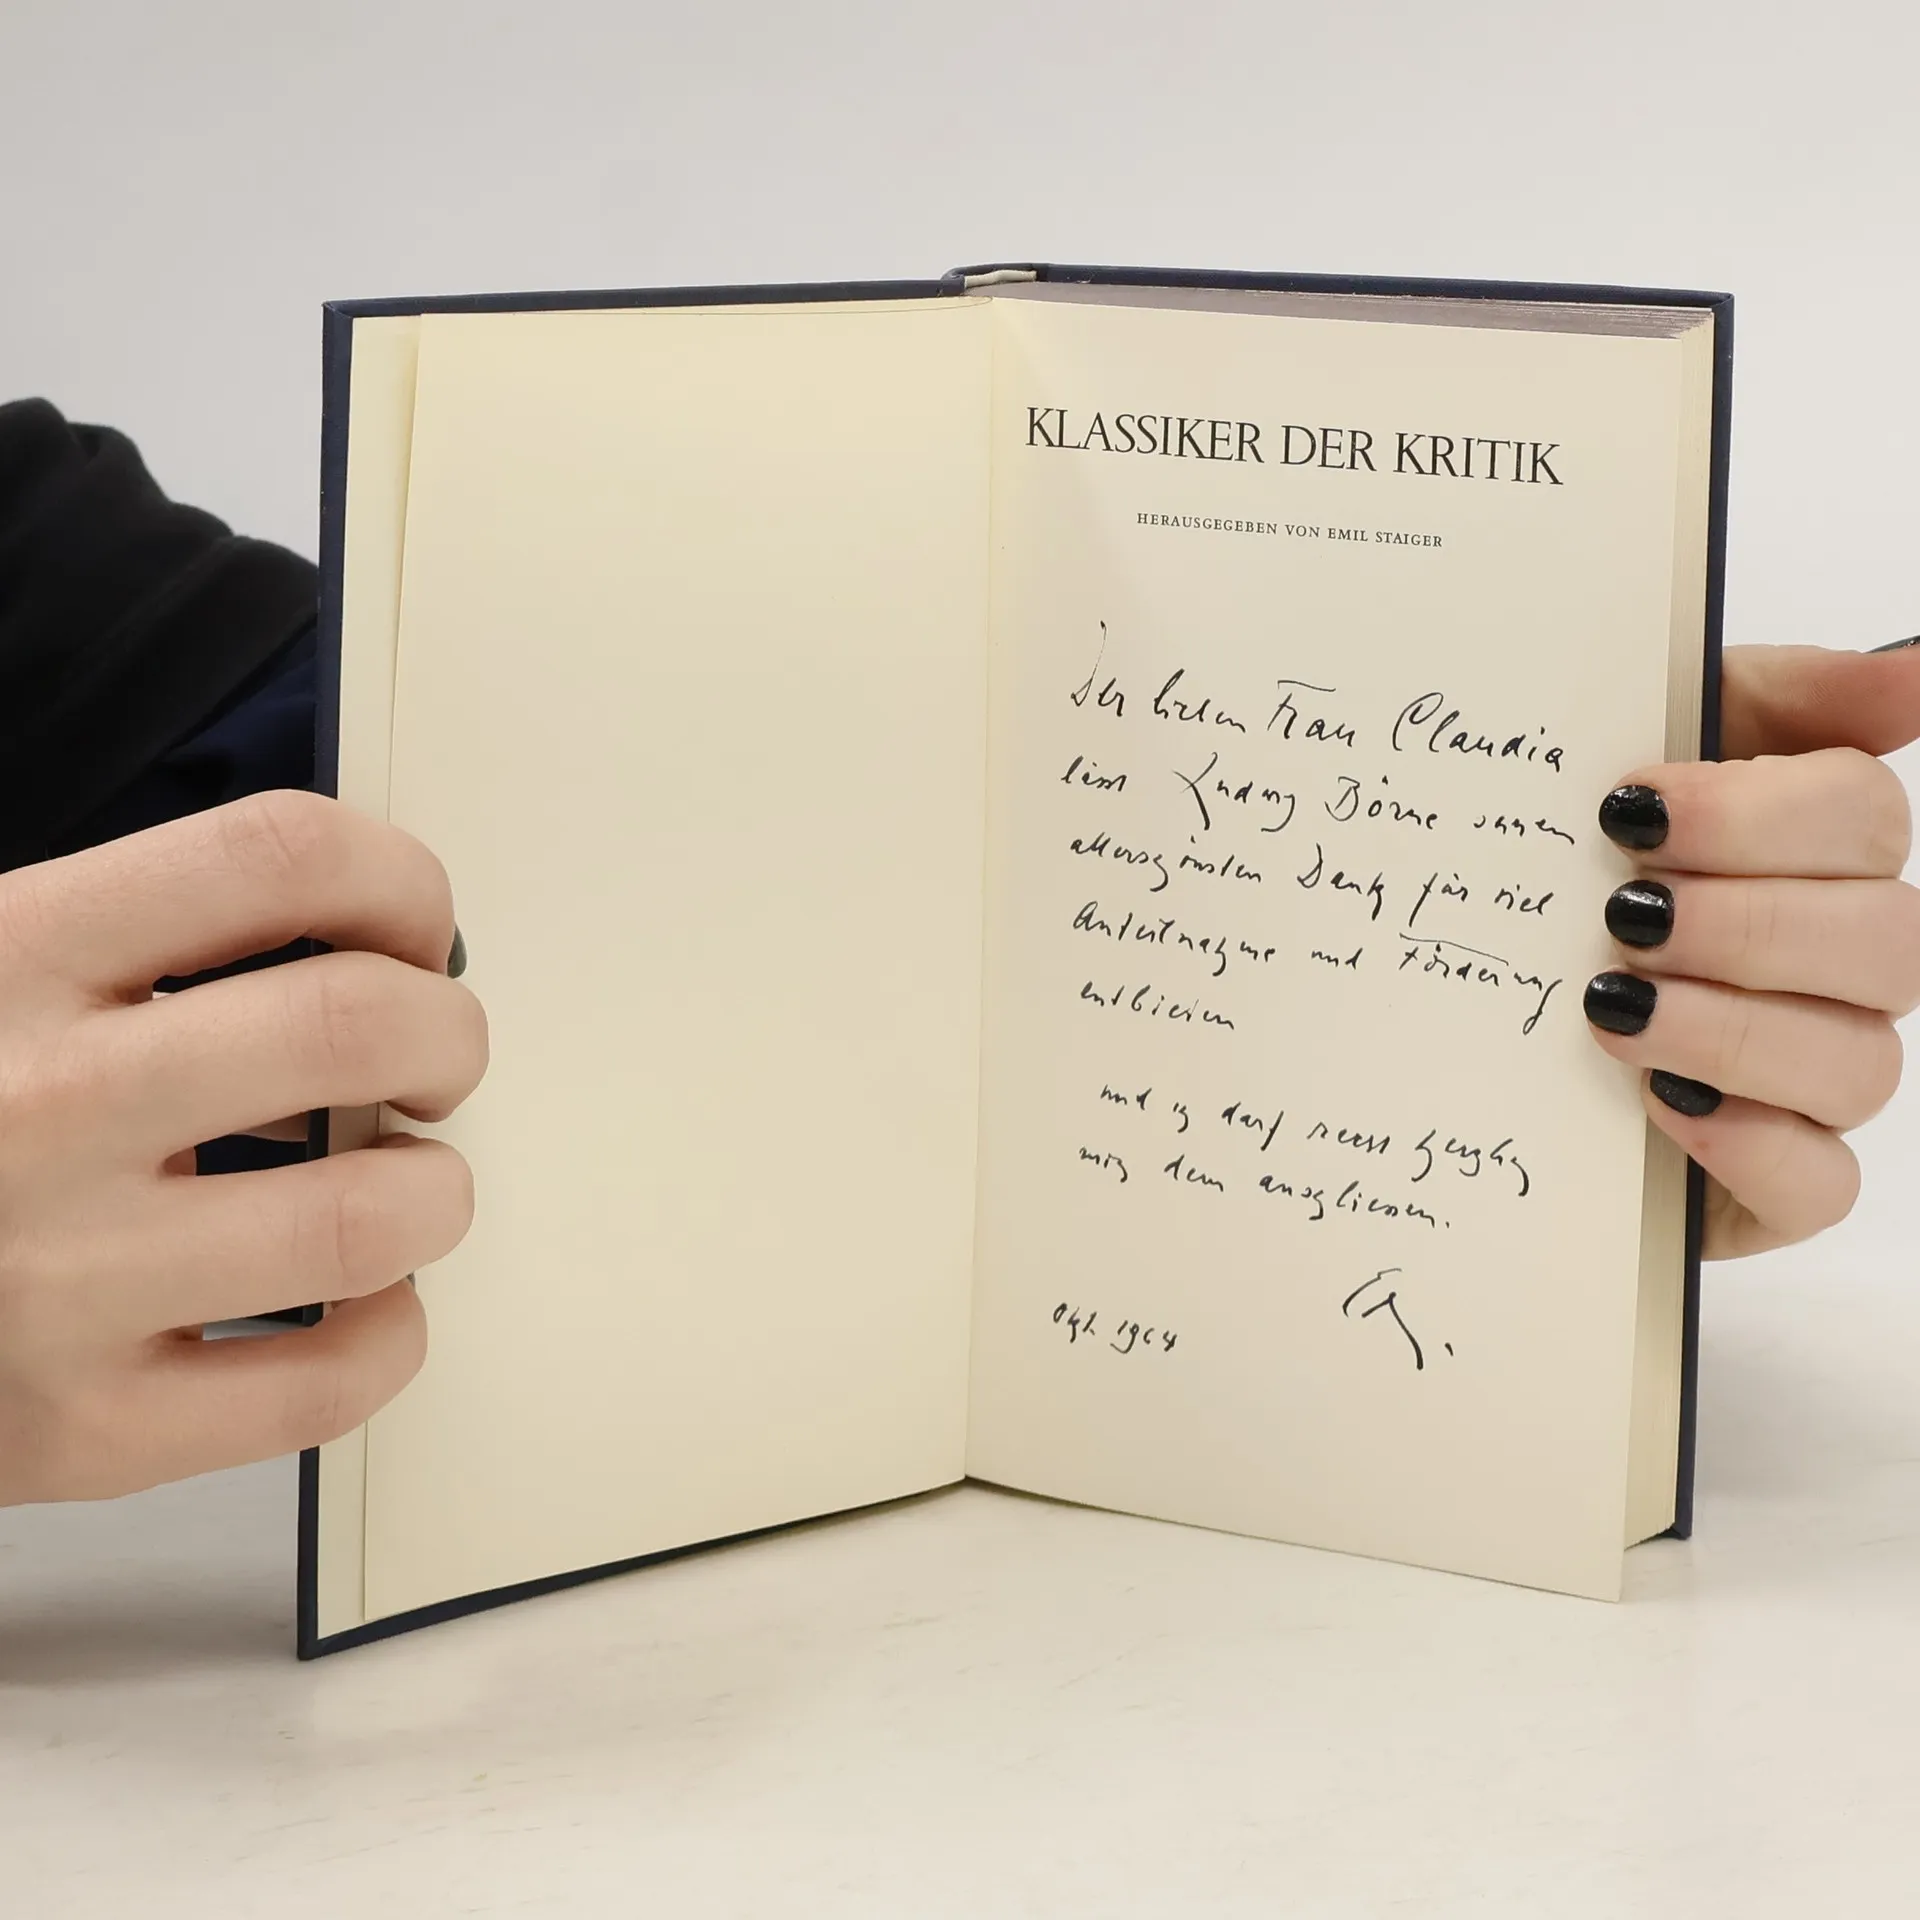 KLASSIKER DER KRITIK
HERAUSGEGEBEN VON EMIL STAIGER
Der lieben Frau Claudia
lässt Ludwig Börne seinen
allerschönsten Dank für viel
Anteilnahme und Förderung
entbieten
und ich darf recht herzlich
mich dem anschliessen.
Okt. 1964